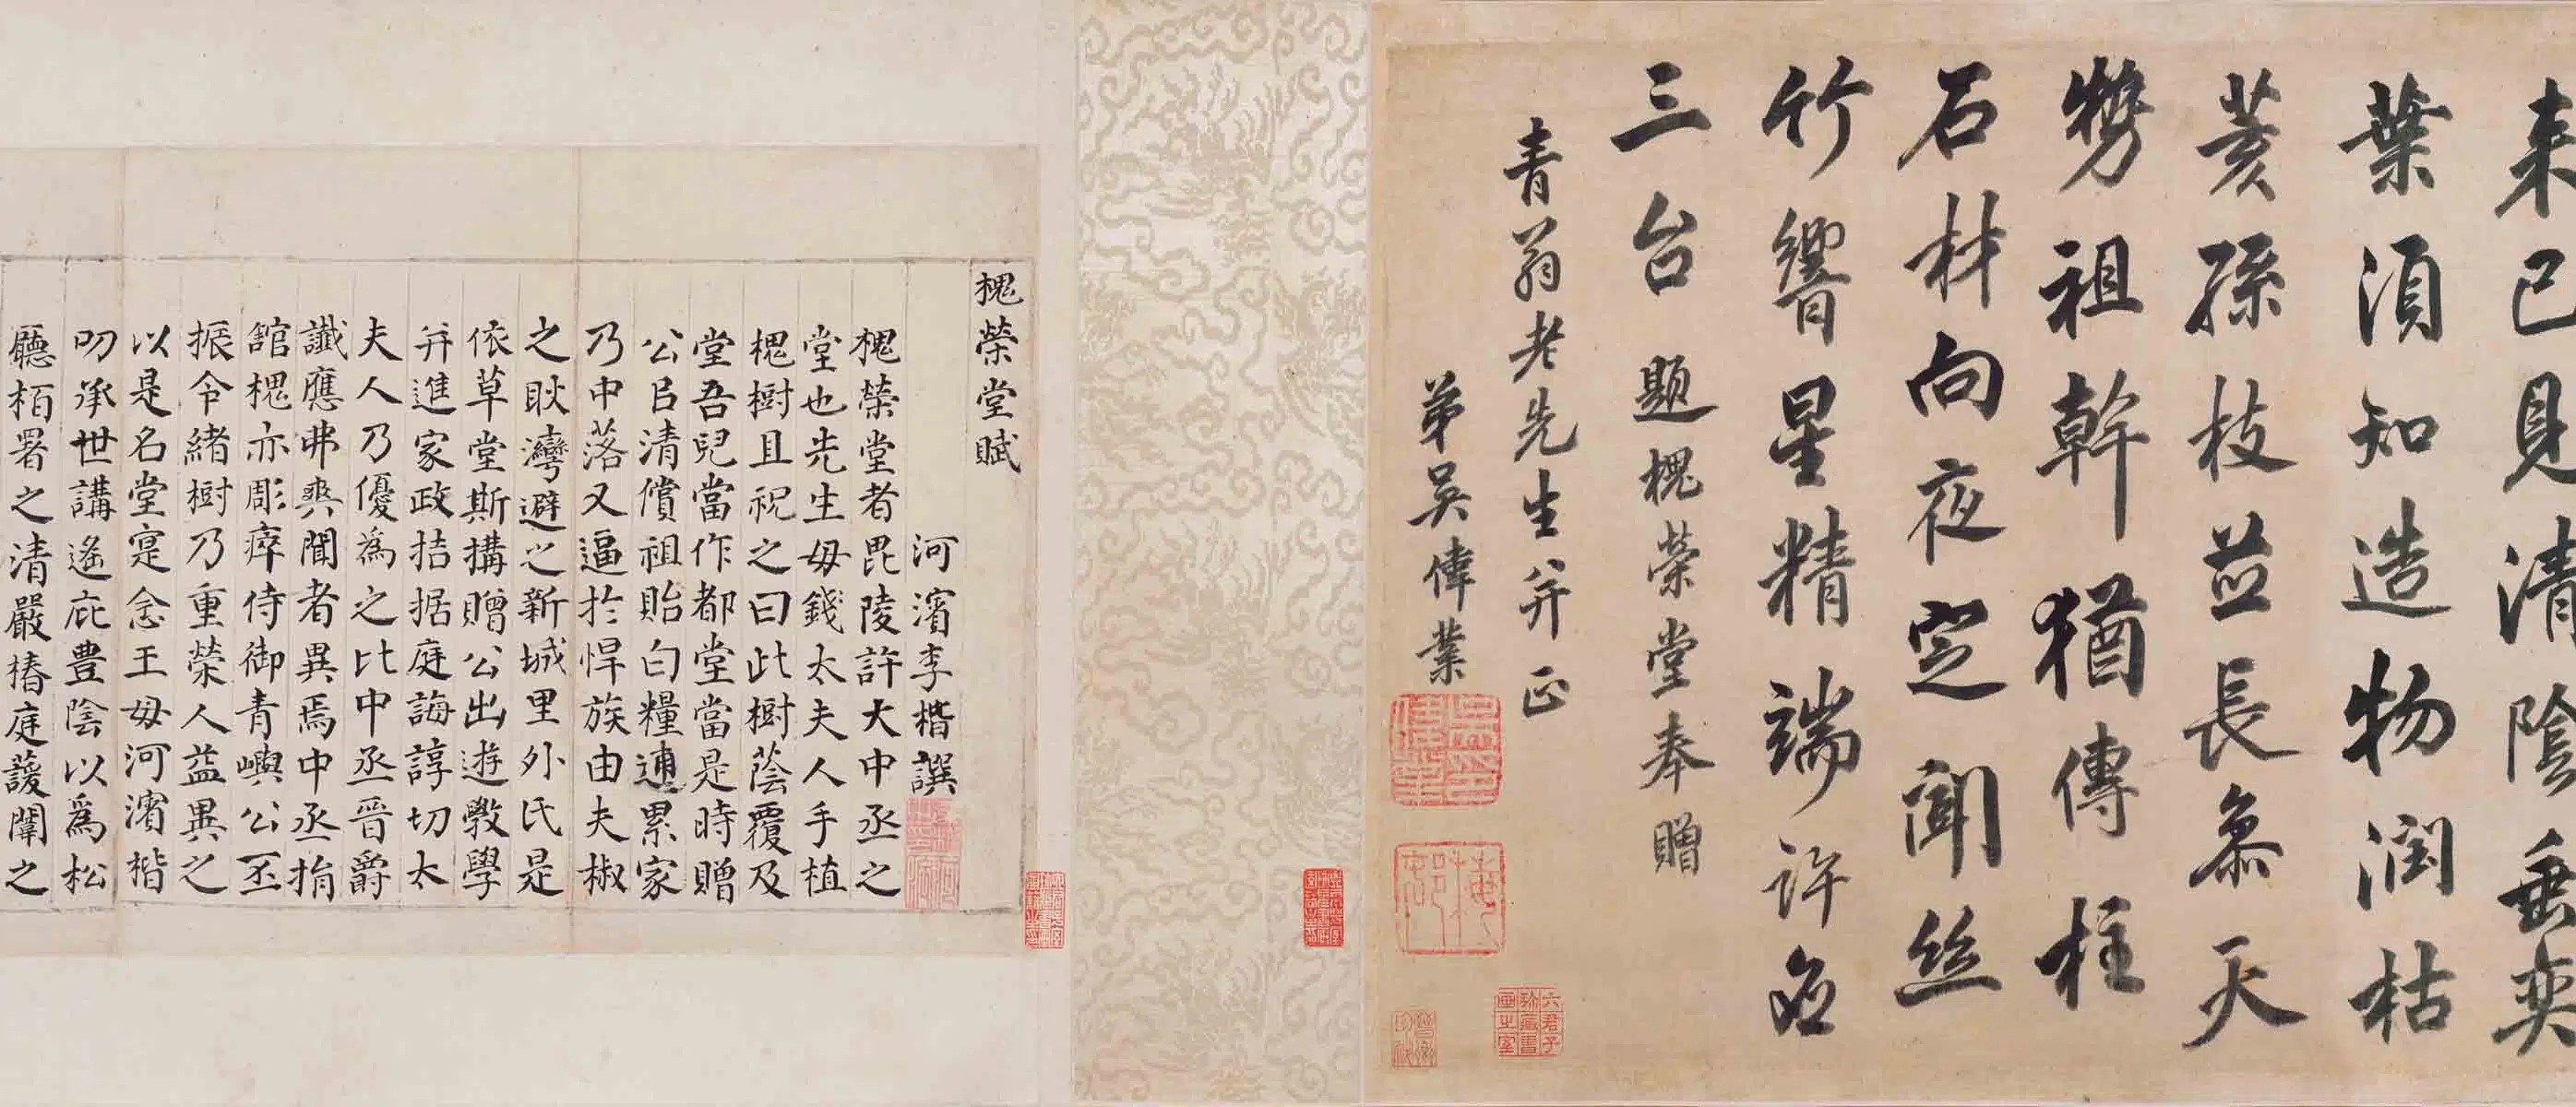 来已見清陰垂奕
葉須知造物潤枯
荄孫枝並長參天
勢祖幹猶傳柱
石材向夜定聞絲
竹響星精端許應
三台 題槐榮堂奉贈
青翁老先生并正
弟吳偉業
槐榮堂賦
河濱李楷譔
槐榮堂者毘陵許大中丞之
堂也先生母錢太夫人手植
槐樹且祝之曰此樹蔭覆及
堂吾兒當作都堂當是時贈
公㠯清償祖貽白糧逋累家
乃中落又逼於悍族由夫椒
之耿灣避之新城里外氏是
依草堂斯搆贈公出遊敎學
并進家政拮据庭誨諄切太
夫人乃優為之比中丞晉爵
讖應弗爽聞者異焉中丞捐
舘槐亦彫瘁侍御青嶼公丕
振令緒樹乃重榮人益異之
以是名堂寔念王母河濱楷
叨承世講遙庇豊陰以為松
廳栢署之清嚴椿庭諼闈之
六君子
珎藏書
画之室